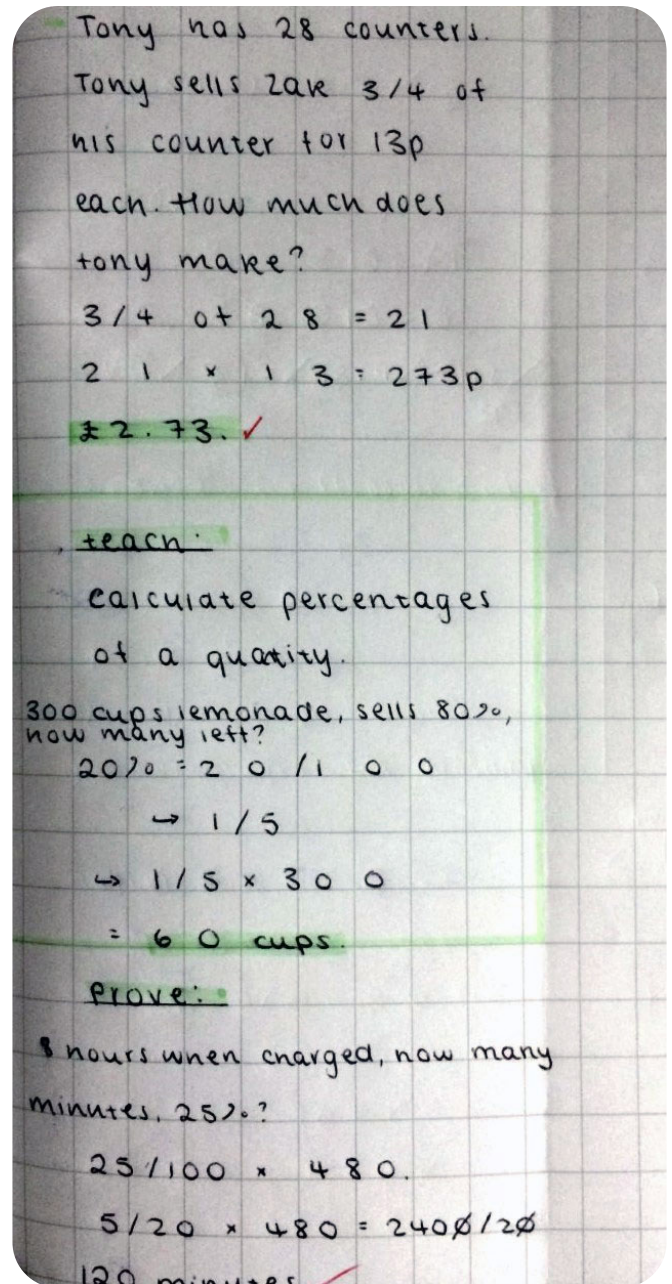 Tony has 28 counters.
Tony sells Zak 3/4 of
his counter for 13p
each. How much does
tony make?
3/4 of 28 = 21
21 × 13 = 273p
£2.73. ✓
teach:
calculate percentages
of a quatity.
300 cups lemonade, sells 80%,
how many left?
20% = 20/100
→ 1/5
→ 1/5 × 300
= 60 cups.
Prove:
8 hours when charged, how many
minutes, 25%?
25/100 × 480.
5/20 × 480 = 2400/20
120 minutes ✓